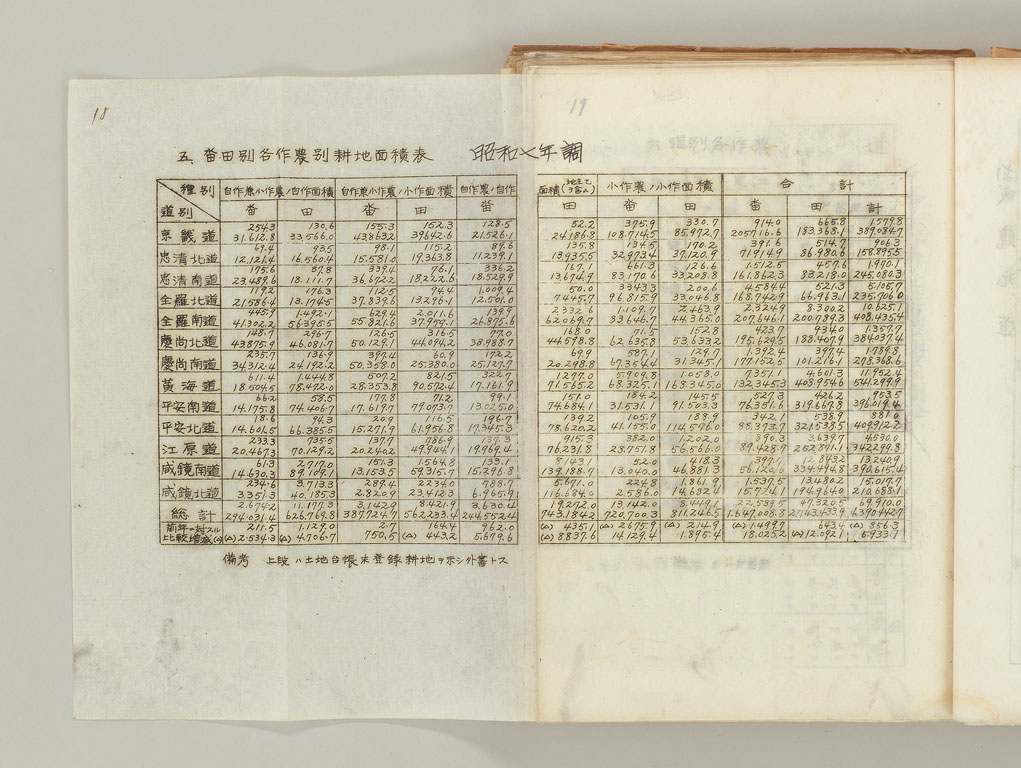 18
19
五. 畓田別各作農別耕地面積表 昭和七年調
種別
道別
自作兼小作農ノ自作面積 自作兼小作農ノ小作面積 自作農ノ自作面積(地主ヲ含ム) 小作農ノ小作面積 合計
畓 田 畓 田 畓 田 畓 田 畓 田 計
京畿道 254.3 130.6 155.3 152.3 128.5 52.2 375.9 330.7 914.0 665.8 1,579.8
31,612.8 33,566.0 43,863.2 39,642.6 21,526.1 24,186.8 108,714.5 85,972.7 205,716.6 183,368.1 389,084.7
忠清北道 69.4 93.5 98.1 115.2 89.6 135.8 134.5 170.2 391.6 514.7 906.3
12,121.4 16,560.4 15,581.0 19,363.8 11,239.1 13,935.5 32,973.4 37,120.9 71,914.9 86,980.6 158,895.5
忠清南道 175.6 87.8 339.4 76.1 336.2 167.1 661.3 126.6 1,512.5 457.6
23,489.6 18,111.7 36,672.2 18,222.6 18,529.9 13,674.9 83,170.6 33,208.8 161,862.3 83,218.0 245,080.3
全羅北道 119.2 176.3 112.5 94.4 1,009.4 50.0 3343.3 200.6 4584.4 521.3 5,105.7
21,586.4 13,174.5 37,839.6 13,296.1 12,501.0 7,445.7 96,815.9 33,046.8 168,742.9 66,963.1 235,706.0
全羅南道 445.9 1,492.1 629.4 2,011.6 139.9 2332.6 1,109.7 2,463.9 2,324.9 8,300.2 10,625.1
41,302.2 56,395.5 55,821.6 37,959.1 26,875.6 62,069.7 83,646.7 44,365.0 207,646.1 200,789.3 408,435.4
慶尚北道 148.7 296.7 126.5 316.5 77.0 168.0 71.5 152.8 423.7 934.0 1,357.7
43,875.9 46,081.7 50,129.1 44,094.2 38,988.7 44,598.8 62,635.8 53,633.2 195,629.5 188,407.9 384,037.4
慶尚南道 235.7 136.9 397.4 60.9 172.2 69.9 587.1 129.7 1,392.4 397.4 1,789.8
34,312.4 24,192.2 50,358.0 25,380.0 25,127.7 20,298.8 67,354.4 31,345.1 177,152.5 101,216.1 278,368.6
黃海道 611.4 1,444.8 507.2 821.5 322.7 1277.0 5,909.8 1,058.0 7,351.1 4,601.3 11,952.4
18,504.5 78,472.0 28,353.8 90,572.4 17,161.9 71,565.2 68,325.1 168,345.0 132,345.3 408,954.6 541,299.9
平安南道 66.2 58.5 177.8 71.2 99.1 151.0 184.2 145.5 527.3 426.2 953.5
14,175.8 74,406.7 17,619.7 79,073.7 13,025.0 74,684.1 31,531.1 91,503.3 76,351.6 319,667.8 396,019.4
平安北道 18.6 94.3 120.9 116.5 139.2 105.9 188.9 342.1 538.9 881.0
14,601.5 66,385.5 15,271.9 61,956.8 17,345.3 78,620.2 41,155.0 114,576.0 88,373.7 321,538.5 409,912.2
江原道 233.3 735.5 137.7 786.9 137.3 915.3 382.0 1,202.0 890.3 3,639.7 4,530.0
20,467.3 70,129.2 20,240.2 49,944.1 19,969.4 76,231.8 28,751.8 56,566.0 89,428.7 252,871.1 342,299.8
咸鏡南道 61.3 2,717.0 151.3 1,564.8 133.1 8,143.1 52.0 418.3 12,843.2 13,240.9
14,630.3 89,109.1 13,153.5 59,315.7 15,296.8 139,188.7 13,040.0 46,881.3 56,120.6 334,494.8 390,615.4
咸鏡北道 234.6 3,713.3 289.4 2,234.0 788.7 5,671.0 224.8 1,861.9 1,537.5 13,480.2 15,017.7
3,351.3 40,185.3 2,820.9 23,412.3 6,965.9 116,684.0 2,586.0 14,682.4 15,724.1 194,964.0 210,688.1
総計 2,674.2 11,177.3 3,142.9 8,421.9 3,630.4 19,272.0 13,142.0 8,449.1 22,589.5 47,320.3 69,910.0
294,031.4 626,769.8 387,724.7 562,233.4 244,552.4 743,184.2 720,700.3 811,246.5 1,647,008.8 2,743,433.9 4,390,442.7
前年ニ対スル 211.5 1,129.0 2.7 164.4 962.0 (△) 435.1 (△) 2,675.9 (△) 214.9 (△) 1,499.7 643.4 (△) 856.3
比較増減(△) (△) 2,534.3 (△) 4,706.7 750.5 (△) 443.2 5,679.6 (△) 8,837.6 14,129.4 1,895.4 18,025.2 (△) 12,092.1 5,933.1
備考 上段ハ土地台帳未登録耕地ヲ示シ外書トス